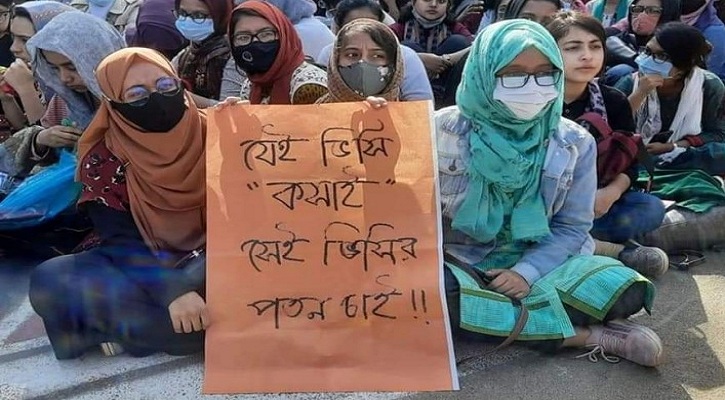 যেই ভিসি
"কসাই"
সেই ভিসির
পতন চাই!!